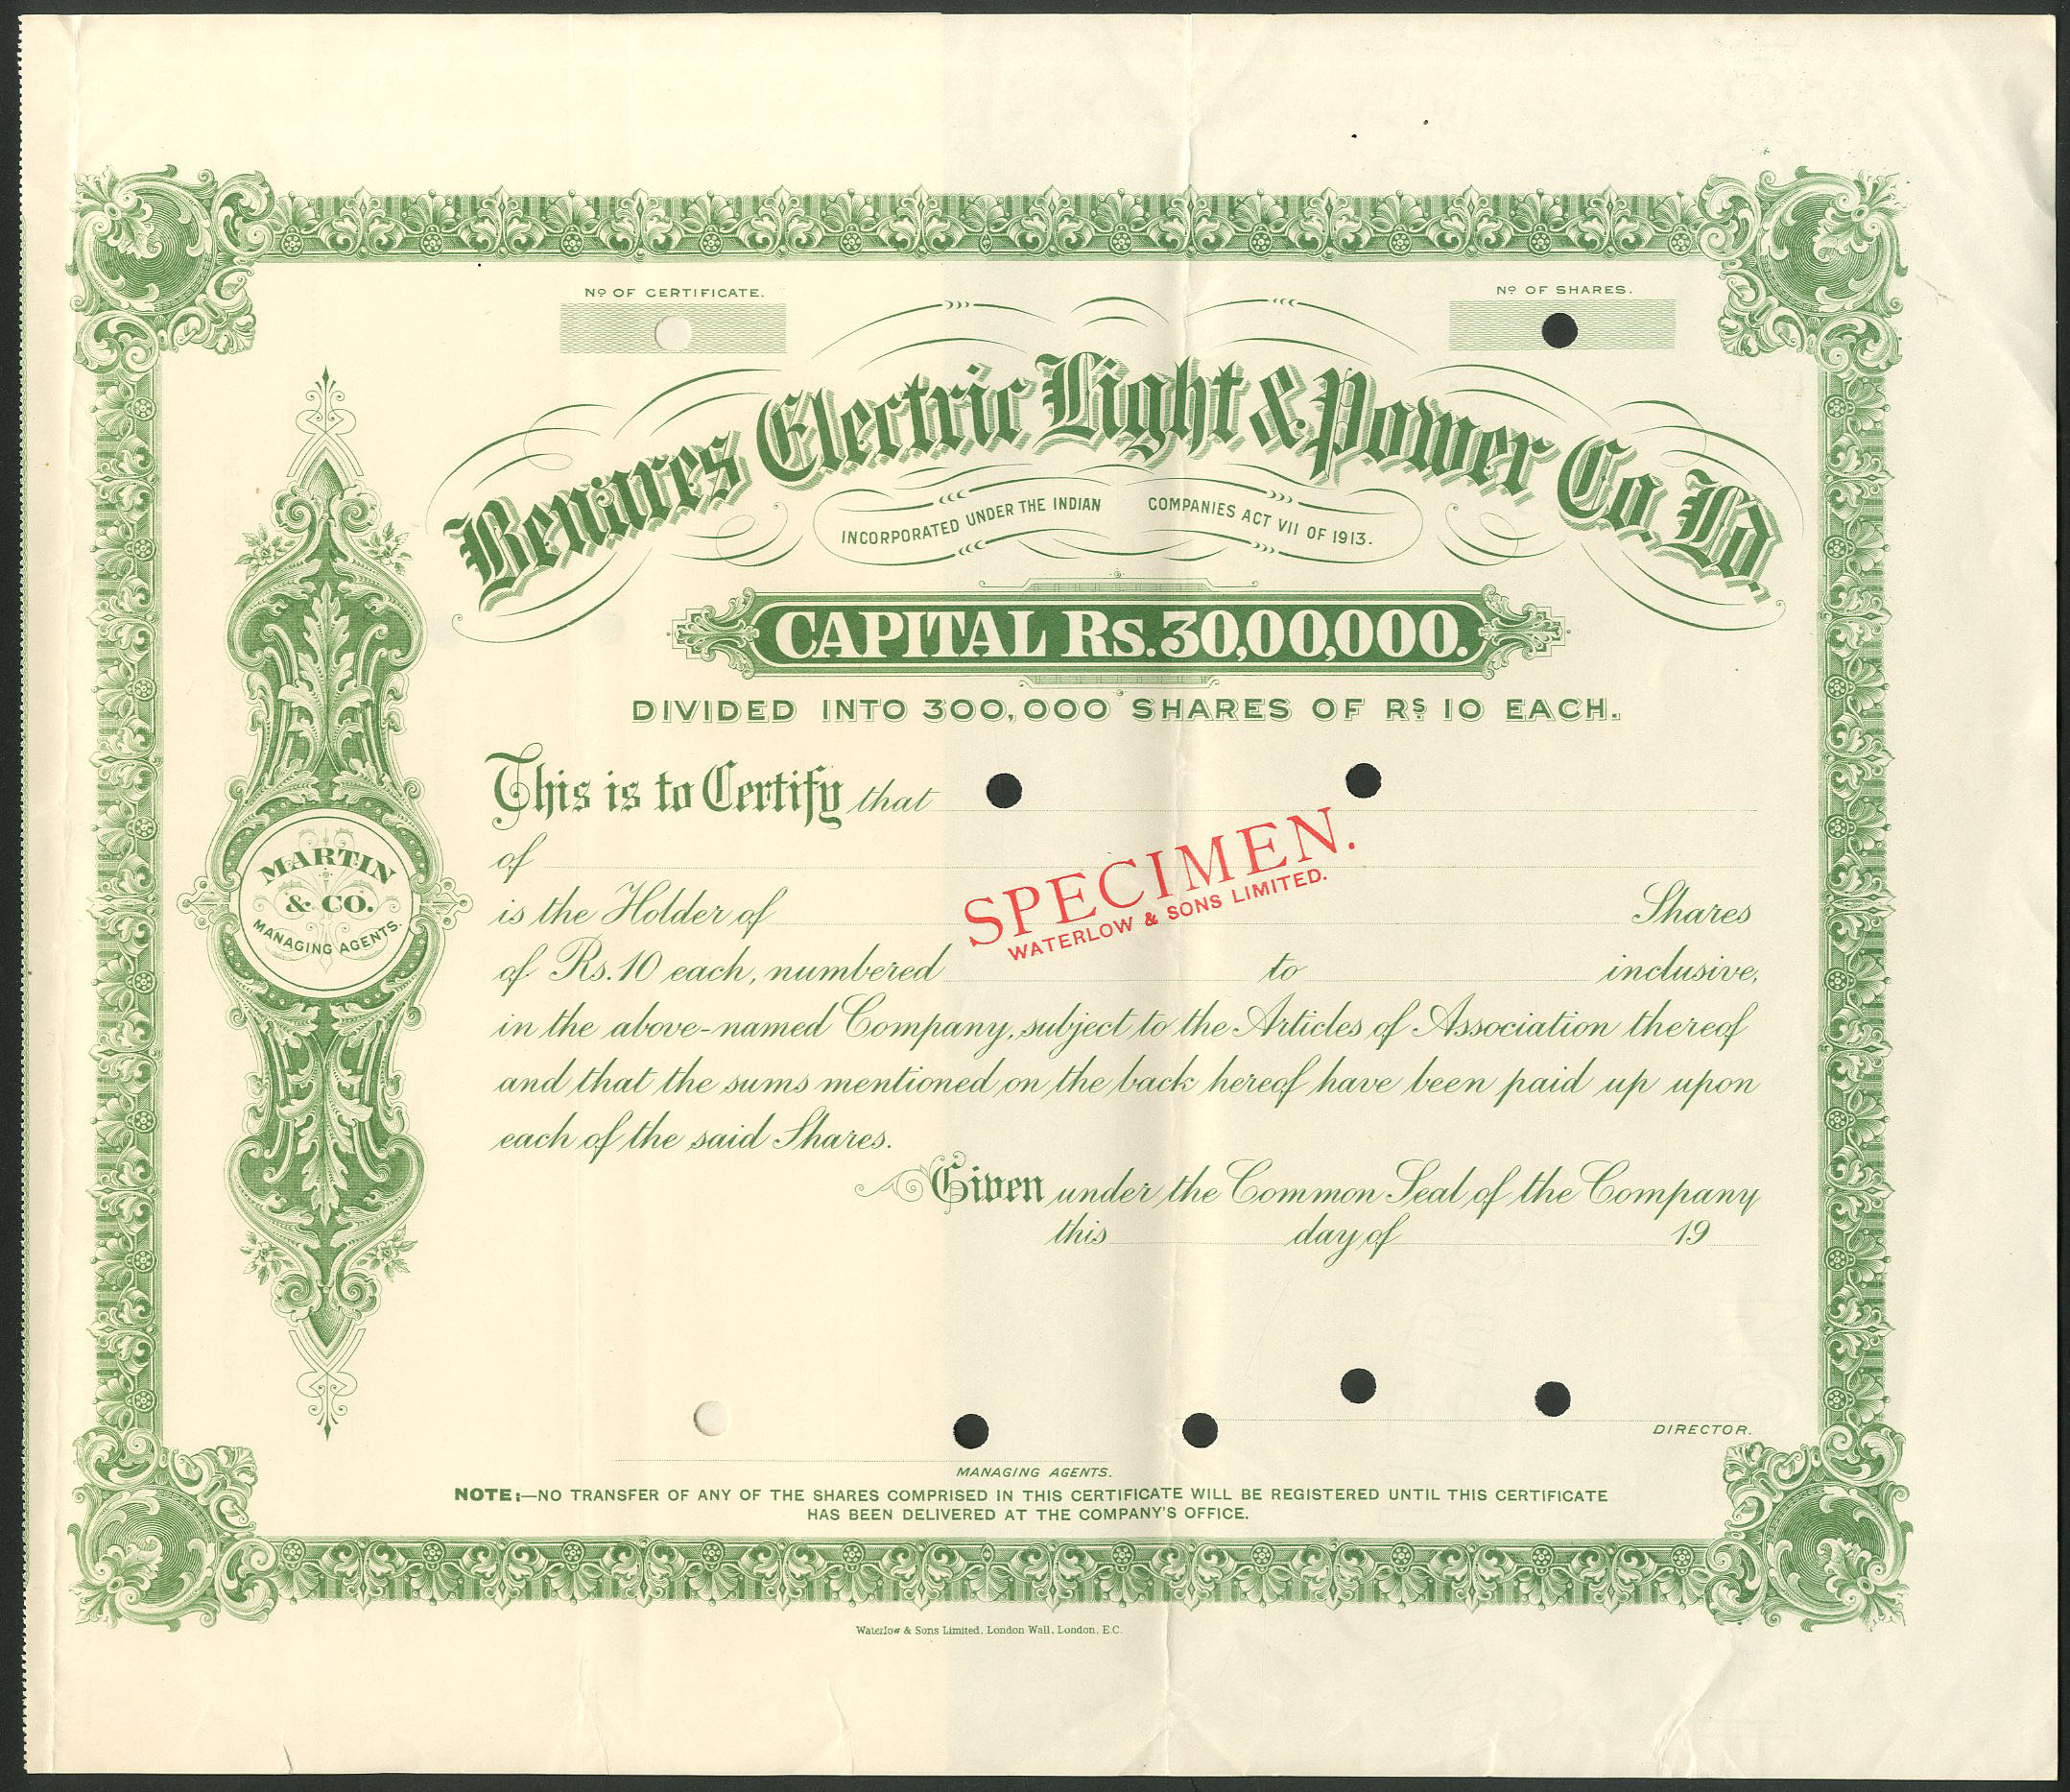 Nº OF CERTIFICATE.
Nº OF SHARES.
Benares Electric Light & Power Co. Ld.
INCORPORATED UNDER THE INDIAN COMPANIES ACT VII OF 1913.
CAPITAL Rs. 30,00,000.
DIVIDED INTO 300,000 SHARES OF RS 10 EACH.
This is to Certify that
of
is the Holder of Shares
of Rs. 10 each, numbered to inclusive,
in the above-named Company, subject to the Articles of Association thereof
and that the sums mentioned on the back hereof have been paid up upon
each of the said Shares.
Given under the Common Seal of the Company
this day of 19
SPECIMEN.
WATERLOW & SONS LIMITED.
MARTIN
& CO.
MANAGING AGENTS.
DIRECTOR.
MANAGING AGENTS.
NOTE:—NO TRANSFER OF ANY OF THE SHARES COMPRISED IN THIS CERTIFICATE WILL BE REGISTERED UNTIL THIS CERTIFICATE
HAS BEEN DELIVERED AT THE COMPANY'S OFFICE.
Waterlow & Sons Limited, London Wall, London, E.C.